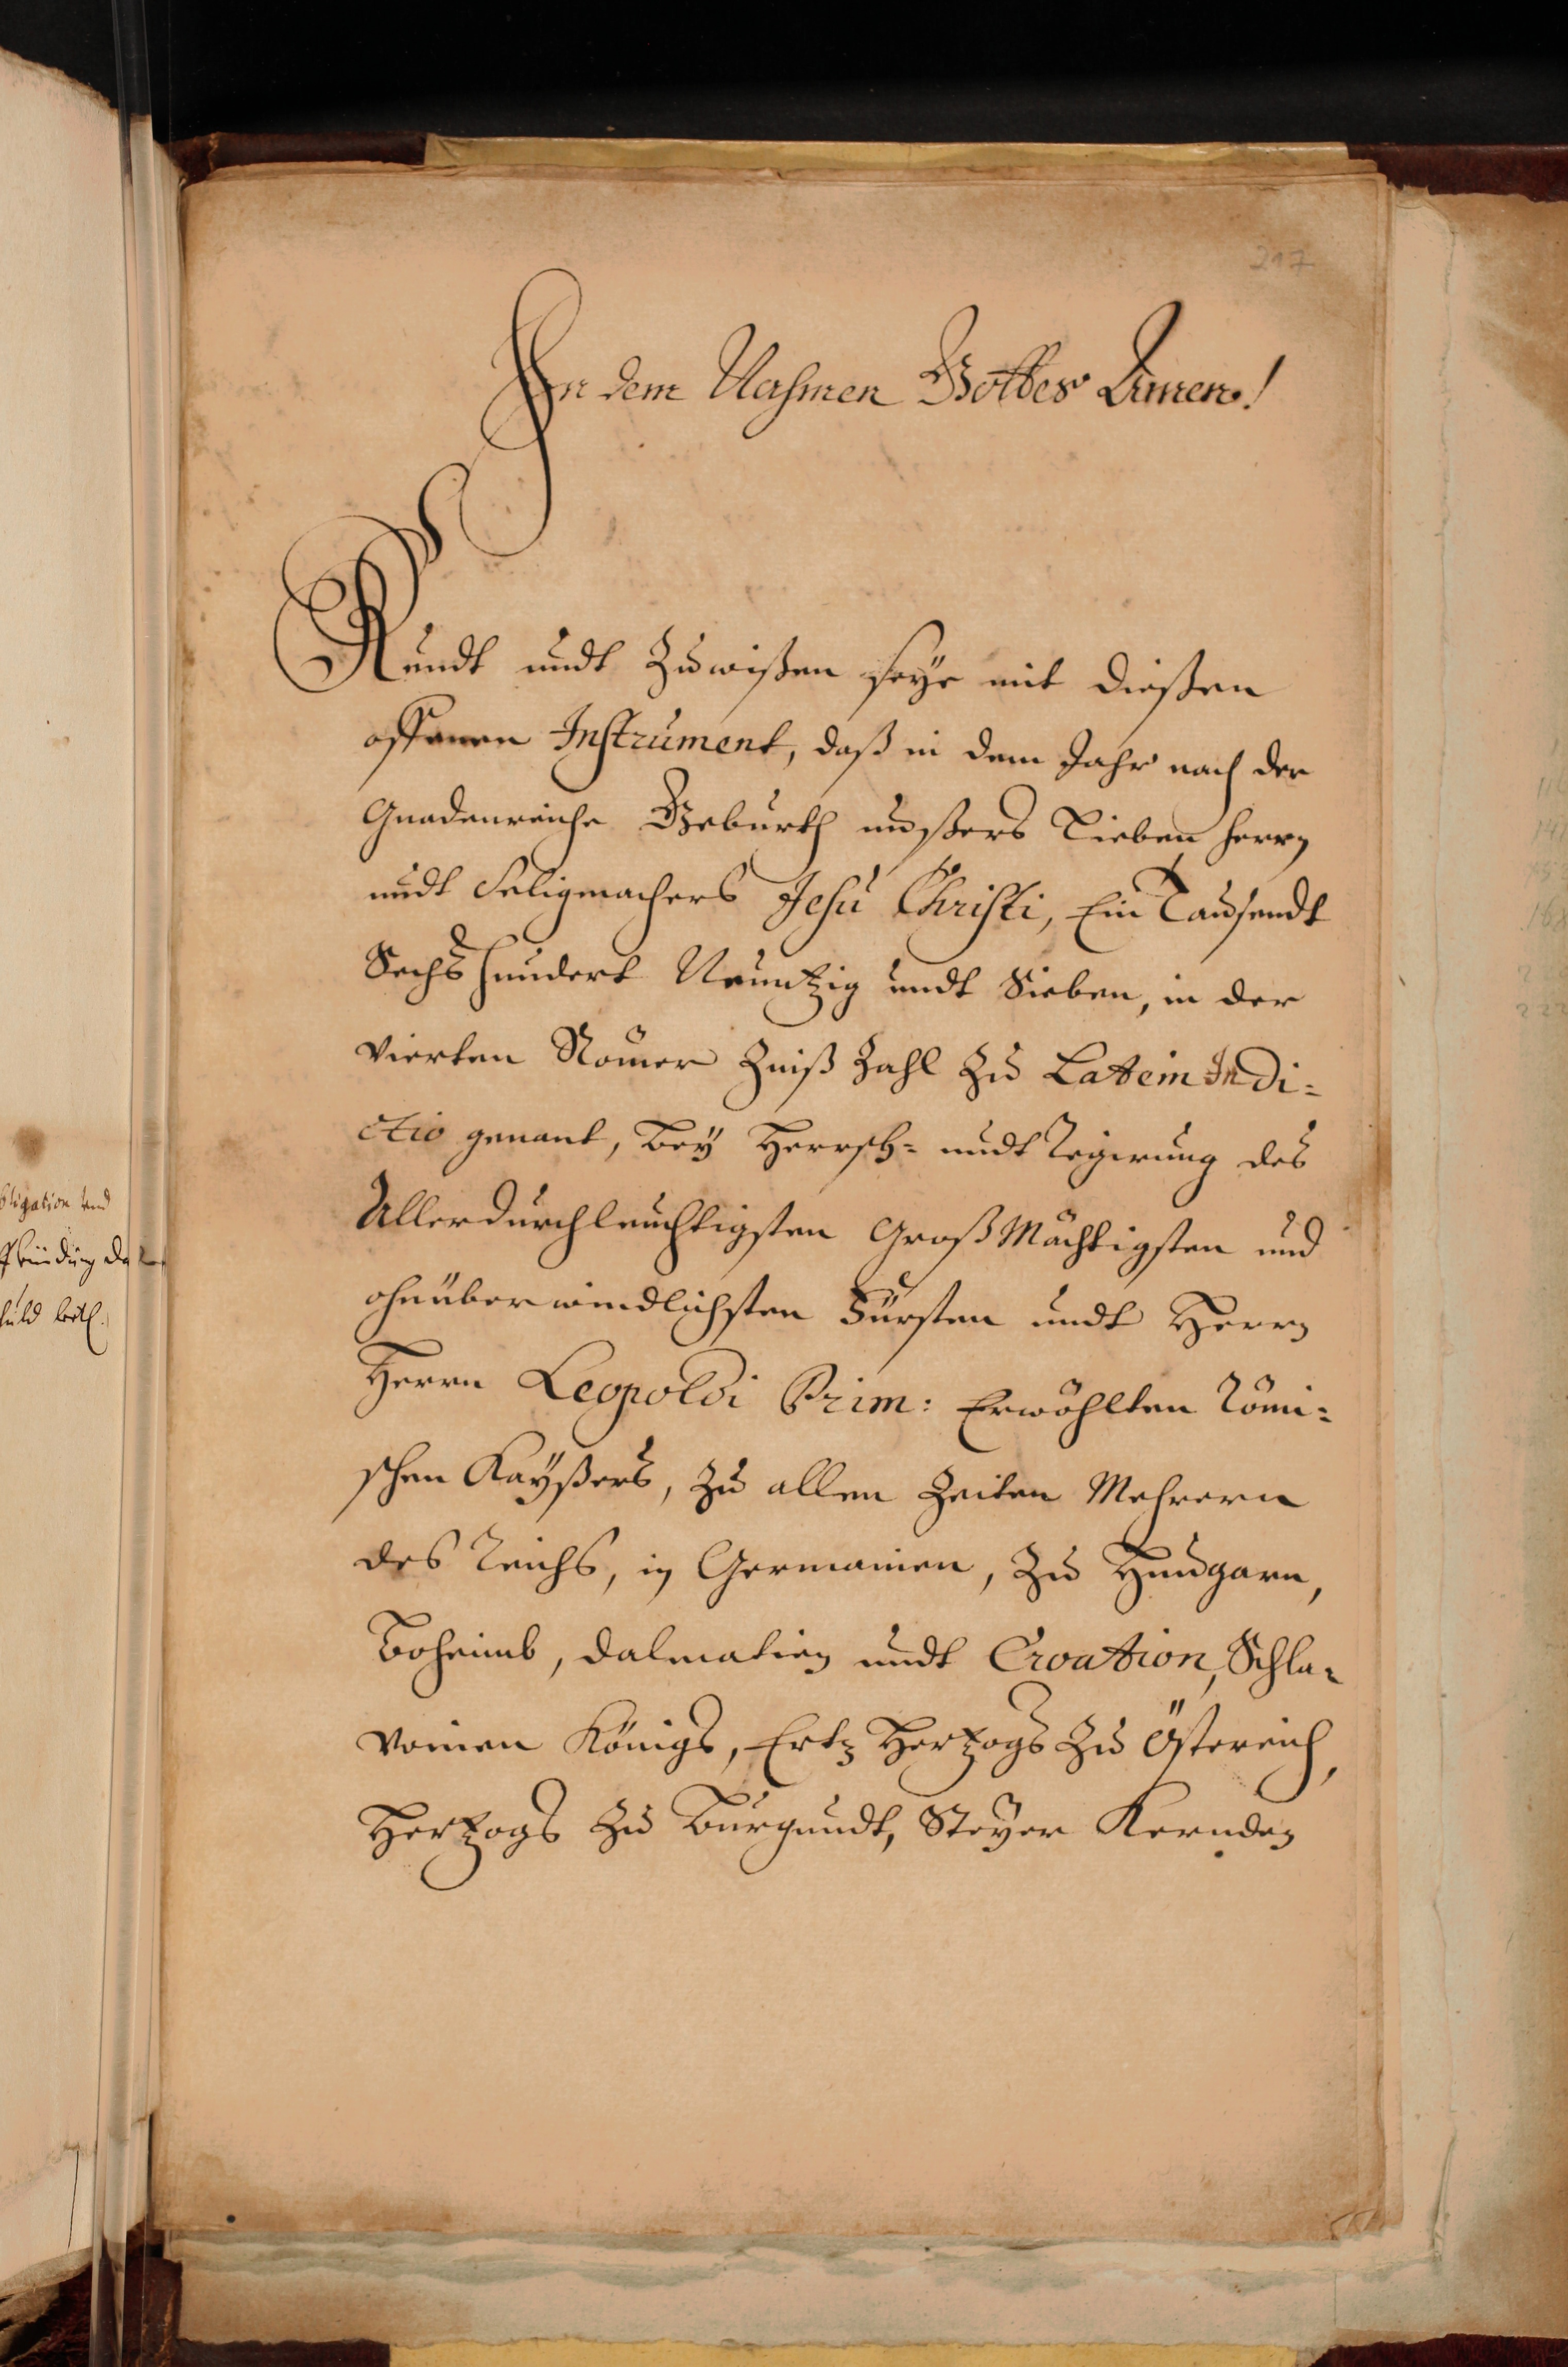 217
In dem Nahmen Gottes Amen!
Kundt undt Zuwißen seye mit dießen
offenen Instrument, daß in dem Jahr nach der
Gnadenreiche Geburth unßers Lieben herrn
undt Seligmachers Jesu Christi, Ein Tausendt
Sechs hundert Neuntzig undt Sieben, in der
vierten Römer Zinß Zahl Zu Latein Indi=
ctio genant, bey Herrsch= undt Regirung des
Allerdurchleuchtigsten Groß Mächtigsten und
ohnüberwindlichsten Fürsten undt Herrn
Herrn Leopoldi Prim: Erwöhlten Römi=
schen Kayßers, zu allen Zeiten Mehrern
des Reichs, in Germanien, Zu Hungarn,
Boheimb, Dalmatien undt Croation, Schla=
vonien Königs, Ertz Hertzogs Zu Östereich,
Hertzogs Zu Burgundt, Steyer Kernden